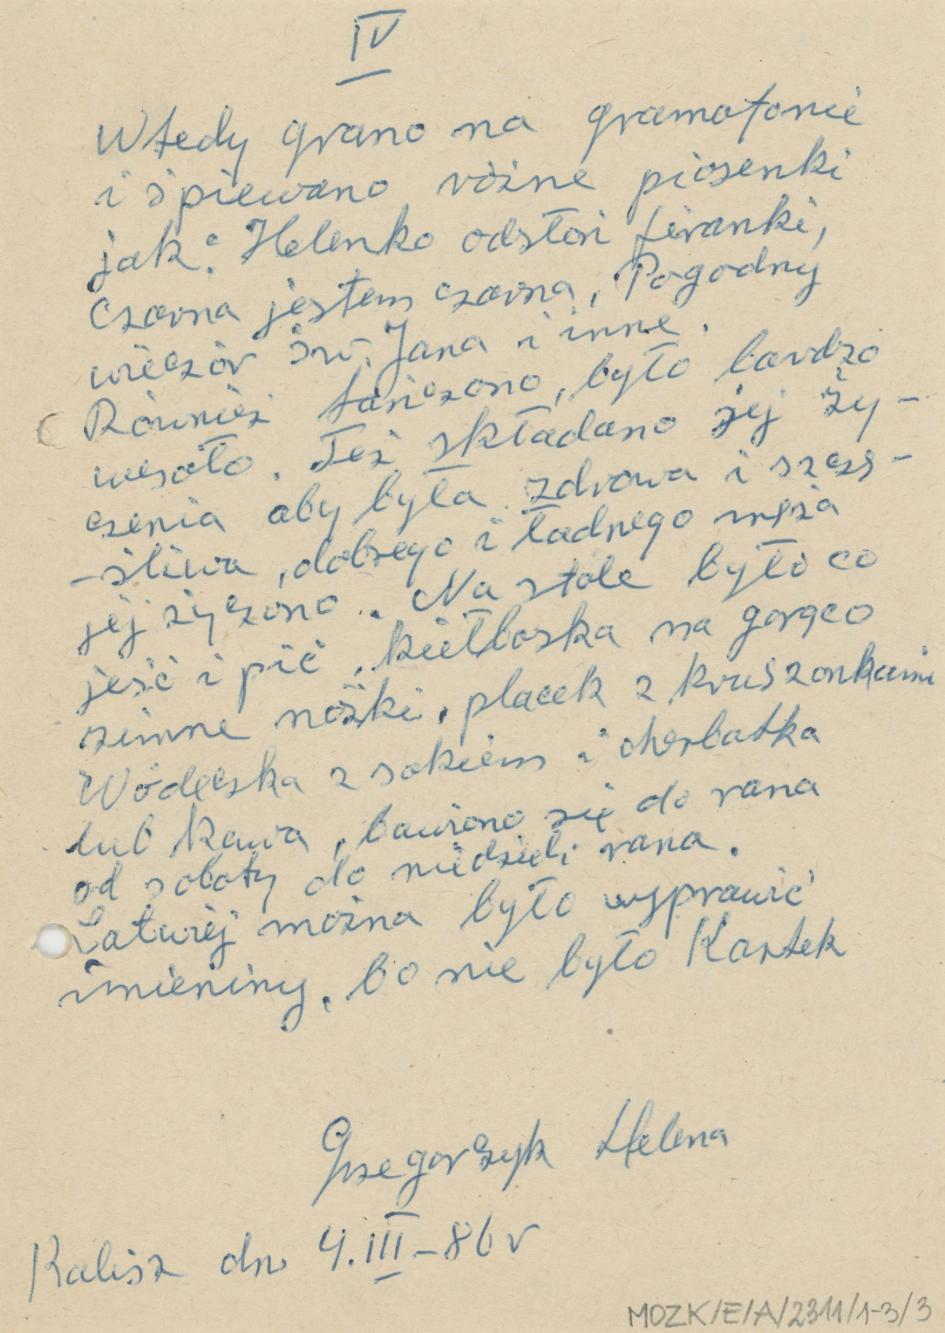 IV
Wtedy grano na gramofonie
i śpiewano różne piosenki
jak: Helenko odsłoń firanki,
Czarna jestem czarna, Pogodny
wieczór św. Jana i inne.
Również tańczono, było bardzo
wesoło. Też składano jej ży-
czenia aby była zdrowa i szczę-
-śliwa, dobrego i ładnego męża
jej życzono. Na stole było co
jeść i pić, kiełbaska na gorąco
zimne nóżki, placek z kruszonkami
Wódeczka z sokiem i cherbatka
lub kawa, bawiono się do rana
od soboty do niedzieli rana.
Łatwiej można było wyprawić
imieniny, bo nie było Kartek
Grzegorzyk Helena
Kalisz dn. 4.III-86 r
MOZK/E/A/2311/1-3/3